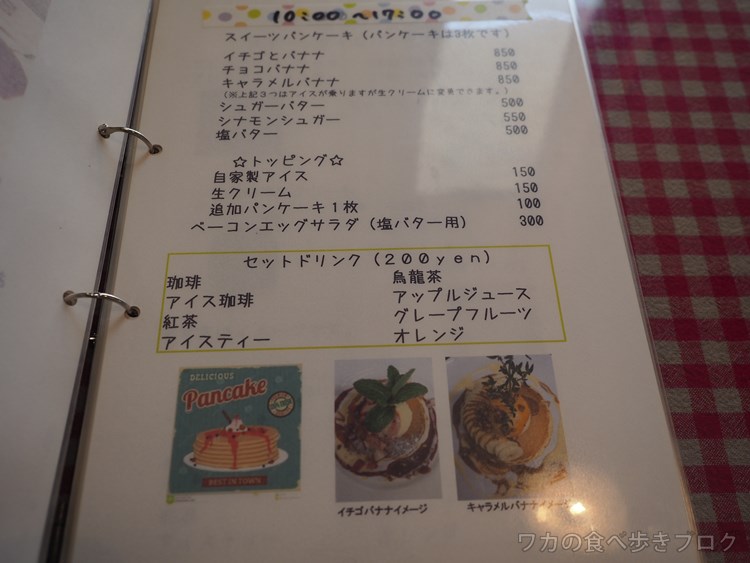 10:00 〜17:00
スイーツパンケーキ(パンケーキは3枚です)
イチゴとバナナ 850
チョコバナナ 850
キャラメルバナナ 850
(※上記3つはアイスが乗りますが生クリームに変更できます。)
シュガーバター 500
シナモンシュガー 550
塩バター 500
☆トッピング☆
自家製アイス 150
生クリーム 150
追加パンケーキ1枚 100
ベーコンエッグサラダ(塩バター用) 300
セットドリンク(200yen)
珈琲
アイス珈琲
紅茶
アイスティー
烏龍茶
アップルジュース
グレープフルーツ
オレンジ
DELICIOUS
Pancake
BEST IN TOWN
イチゴバナナイメージ
キャラメルバナナイメージ
ワカの食べ歩きブログ